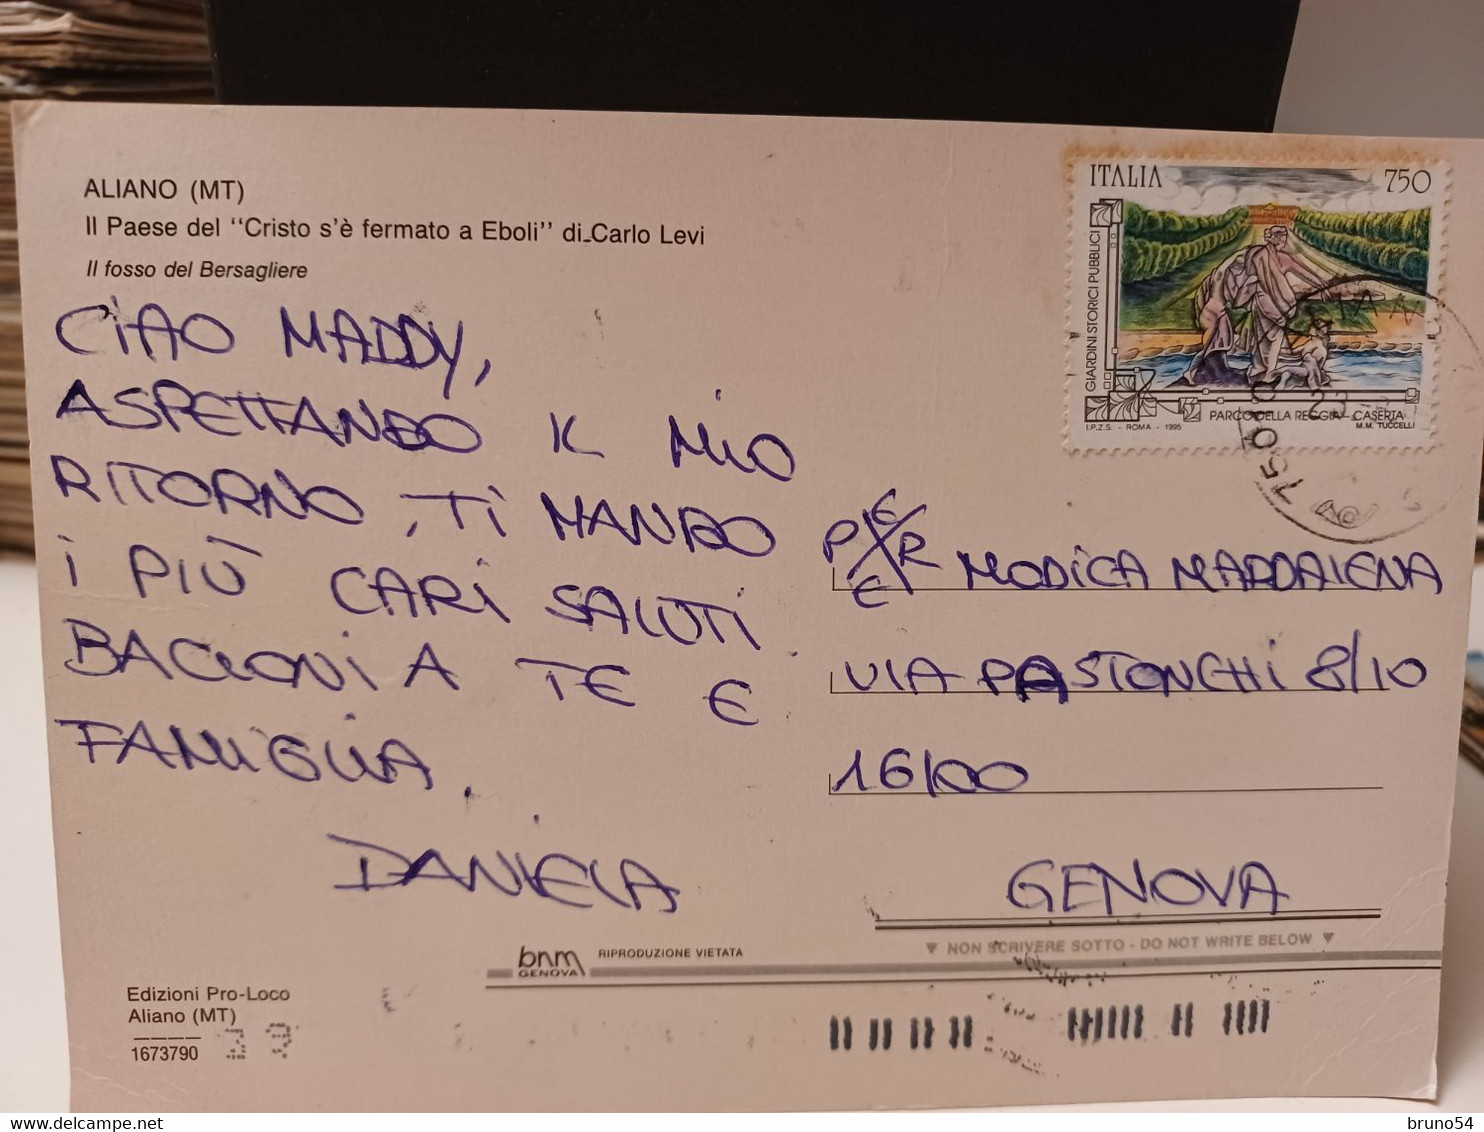 ALIANO (MT)
Il Paese del ''Cristo s'è fermato a Eboli'' di Carlo Levi
Il fosso del Bersagliere
CIAO MADDY,
ASPETTANDO IL MIO
RITORNO, TI MANDO
I PIÙ CARI SALUTI.
BACIONI A TE E
FAMIGLIA.
DANIELA
ITALIA 750
GIARDINI STORICI PUBBLICI
PARCO DELLA REGGIA - CASERTA
I.P.Z.S. - ROMA - 1995 M.M. TUCCELLI
PER MODICA MADDALENA
VIA PASTONCHI 8/10
16100
GENOVA
NON SCRIVERE SOTTO - DO NOT WRITE BELOW
bnm
GENOVA
RIPRODUZIONE VIETATA
Edizioni Pro-Loco
Aliano (MT)
1673790
bruno54